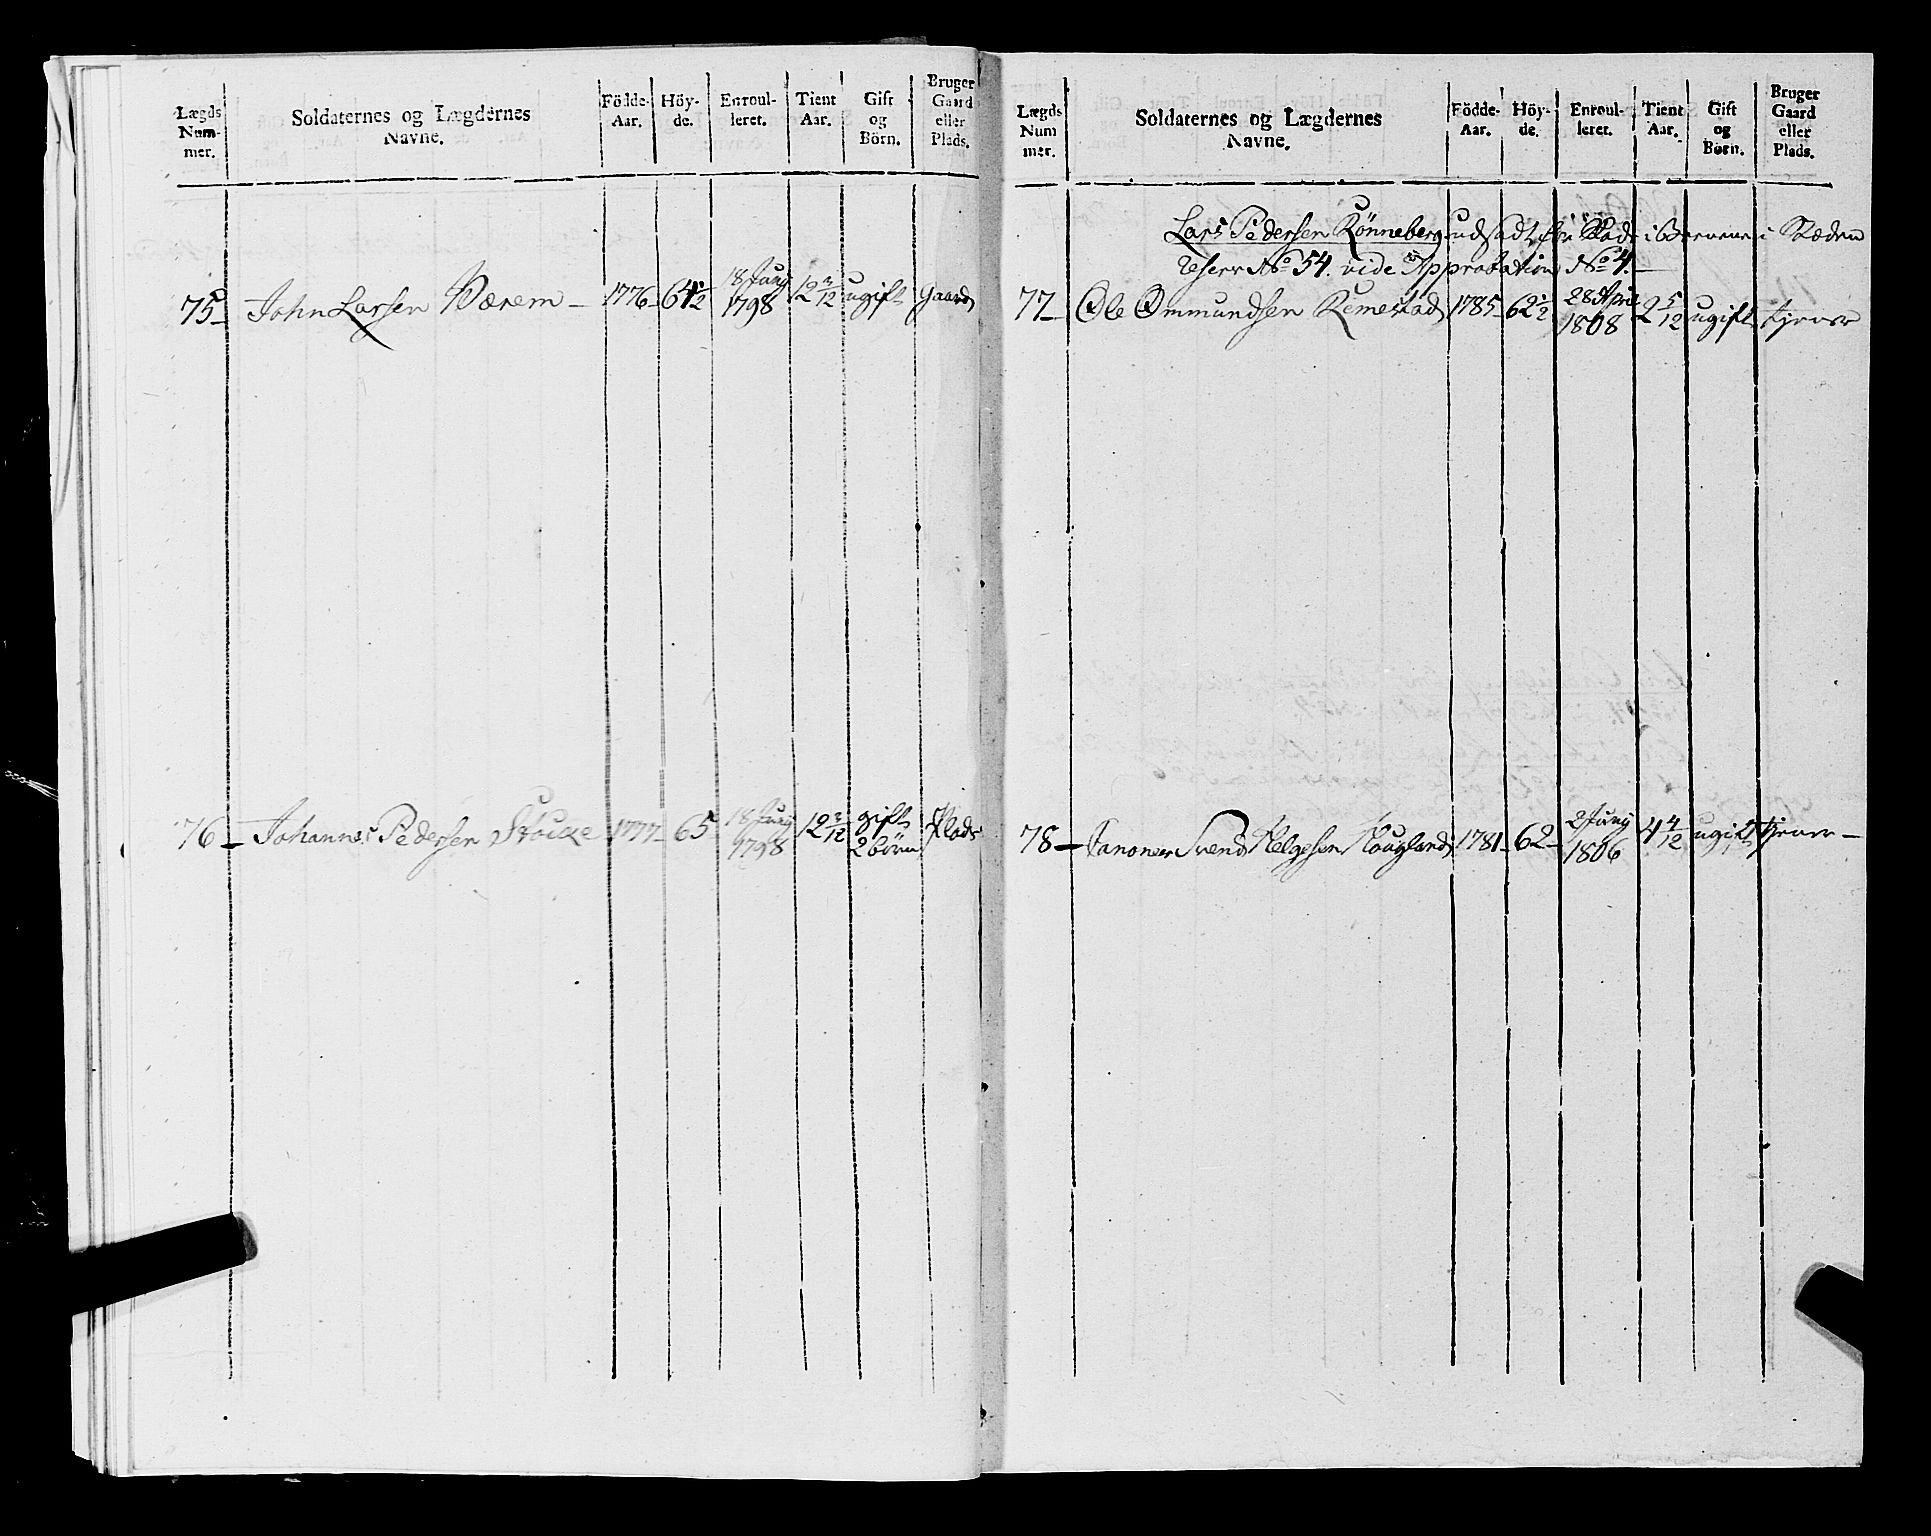 Lægds Num- mer. Soldaternes og Lægdernes Navne. Födde- Aar. Höy- de. Enroul- leret. Tient Aar. Gift og Börn. Bruger Gaard eller Plads.
75 John Larsen Værem 1776 64½ 18 Juny 1798 12 3/12 ugift Gaard
76 Johannes Pedersen 1777 65 18 Juny 1798 12 3/12 gift 2 börn Plads
Lægds Num mer. Soldaternes og Lægdernes Navne. Födde- Aar. Höy- de. Enroul- leret. Tient Aar. Gift og Börn. Bruger Gaard eller Plads.
Lars Pedersen Rönneberg udsadt for Skade i i
Reserv No 54. vide Approbation No 4.
77 Ole Ommundsen Remestad 1785 62½ 28 April 1808 2 5/12 ugift tjener
78 Svend Helgesen Hougland 1781 62 2 Juny 1806 4 4/12 ugift tjener